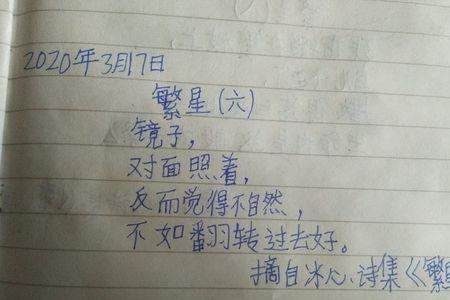 2020年3月17日
繁星(六)
镜子,
对面照着,
反而觉得不自然,
不如翻转过去好。
摘自冰心诗集《繁